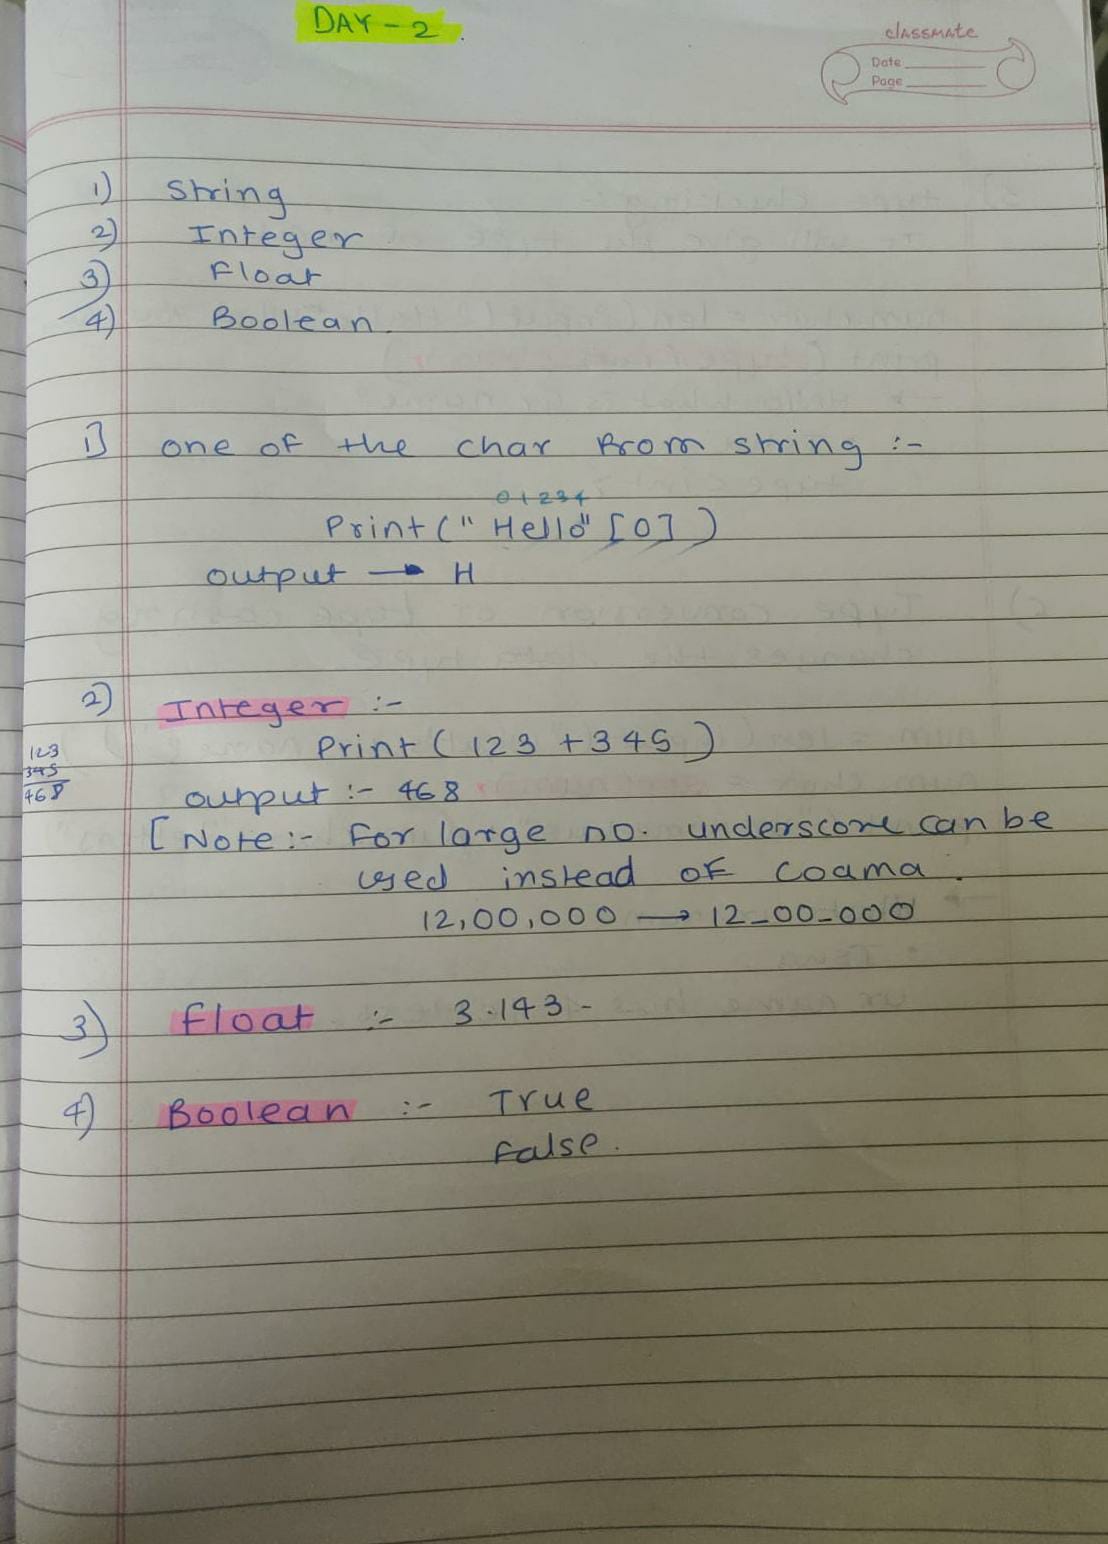 DAY - 2.
classmate
Date
Page
1) String
2) Integer
3) Float
4) Boolean.
1] one of the char from string :-
0 1 2 3 4
Print ("Hello" [0] )
output → H
2) Integer :-
Print ( 123 + 345 )
123
345
468
output :- 468
[ Note :- For large no. underscore can be
used instead of coama.
12,00,000 → 12_00_000
3) Float :- 3.143 -
4) Boolean :- True
False.